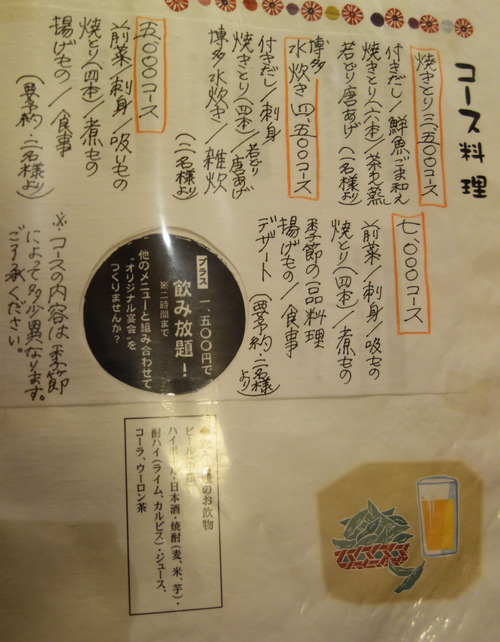 コース料理
焼きとり三、五〇〇コース
付きだし／鮮魚ごま和え
焼きとり(六本)／茶わん蒸
若どり唐あげ(一名様より)
博多
水炊き四、五〇〇コース
付きだし／刺身
焼きとり(四本)／若どり唐あげ
博多水炊き／雑炊
(二名様より)
五、〇〇〇コース
前菜／刺身／吸いもの
焼とり(四本)／煮もの
揚げもの／食事
(要予約・二名様より)
七、〇〇〇コース
前菜／刺身／吸もの
焼とり(四本)／煮もの
季節の一品料理
揚げもの／食事
デザート(要予約・二名様より)
※コースの内容は季節
によって多少異なります。
ご了承ください。
プラス 一、五〇〇円で
飲み放題！
※二時間まで
他のメニューと組み合わせて
“オリジナル宴会”を
つくりませんか？
のお飲物
ビール
ハイボール・日本酒・焼酎(麦、米、芋)・
酎ハイ(ライム、カルピス)・ジュース、
コーラ、ウーロン茶